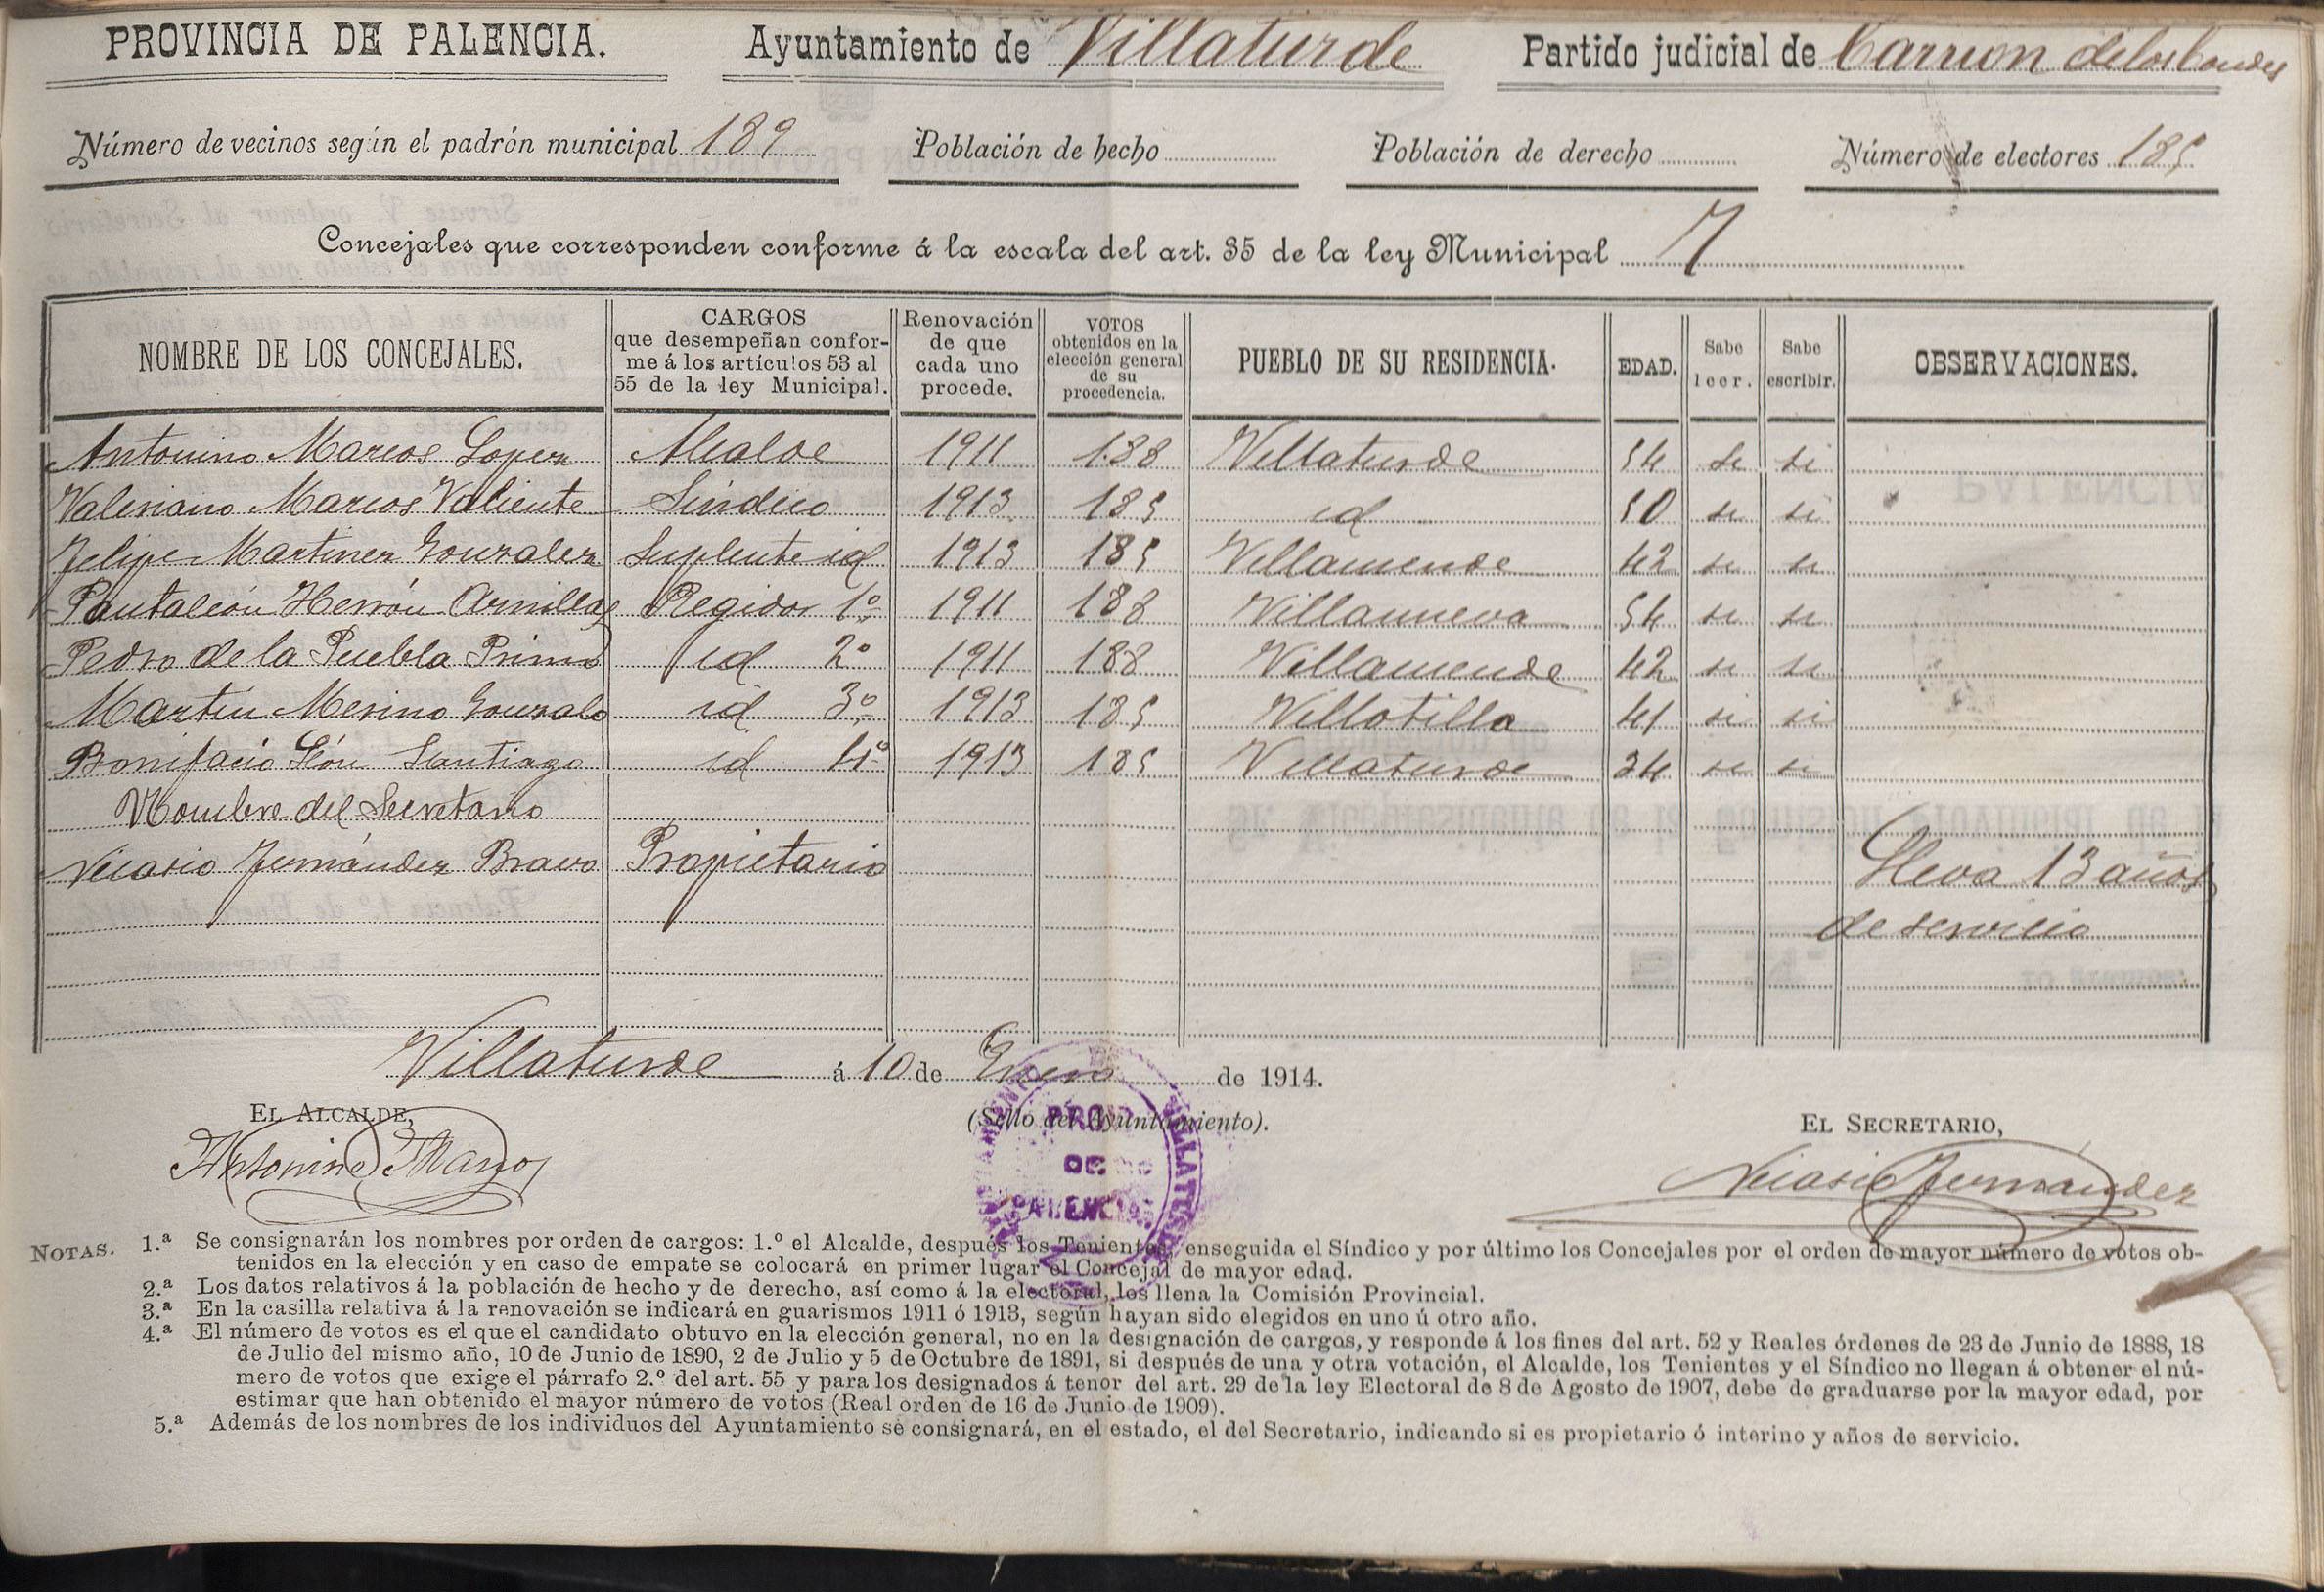 PROVINCIA DE PALENCIA. Ayuntamiento de Villaturde Partido judicial de Carrion de los Condes
Número de vecinos según el padrón municipal 189 Población de hecho Población de derecho Número de electores 185
Concejales que corresponden conforme á la escala del art. 35 de la ley Municipal 7
NOMBRE DE LOS CONCEJALES. CARGOS que desempeñan conforme á los artículos 53 al 55 de la ley Municipal. Renovación de que cada uno procede. VOTOS obtenidos en la elección general de su procedencia. PUEBLO DE SU RESIDENCIA. EDAD. Sabe leer. Sabe escribir. OBSERVACIONES.
Antonino Marcos Lopez Alcalde 1911 188 Villaturde 54 si si
Valeriano Marcos Valiente Síndico 1913 185 id 50 si si
Felipe Martinez Gonzalez Suplente id 1913 185 Villamuende 42 si si
Pantaleón Herrón Arnillas Regidor 1º 1911 188 Villanueva 54 si si
Pedro de la Puebla Primo id 2º 1911 188 Villamuende 42 si si
Martín Merino Gonzalo id 3º 1913 185 Villotilla 41 si si
Bonifacio León Santiago id 4º 1913 185 Villaturde 34 si si
Nombre del Secretario
Nicasio Fernández Bravo Propietario Lleva 13 años
de servicio
Villaturde á 10 de Enero de 1914.
EL ALCALDE, (Sello del Ayuntamiento). EL SECRETARIO,
Antonino Marcos Nicasio Fernández
PROV.
DE
PALENCIA
NOTAS. 1.ª Se consignarán los nombres por orden de cargos: 1.º el Alcalde, después los Tenientes, enseguida el Síndico y por último los Concejales por el orden de mayor número de votos ob-
tenidos en la elección y en caso de empate se colocará en primer lugar el Concejal de mayor edad.
2.ª Los datos relativos á la población de hecho y de derecho, así como á la electoral, los llena la Comisión Provincial.
3.ª En la casilla relativa á la renovación se indicará en guarismos 1911 ó 1913, según hayan sido elegidos en uno ú otro año.
4.ª El número de votos es el que el candidato obtuvo en la elección general, no en la designación de cargos, y responde á los fines del art. 52 y Reales órdenes de 23 de Junio de 1888, 18
de Julio del mismo año, 10 de Junio de 1890, 2 de Julio y 5 de Octubre de 1891, si después de una y otra votación, el Alcalde, los Tenientes y el Síndico no llegan á obtener el nú-
mero de votos que exige el párrafo 2.º del art. 55 y para los designados á tenor del art. 29 de la ley Electoral de 8 de Agosto de 1907, debe de graduarse por la mayor edad, por
estimar que han obtenido el mayor número de votos (Real orden de 16 de Junio de 1909).
5.ª Además de los nombres de los individuos del Ayuntamiento se consignará, en el estado, el del Secretario, indicando si es propietario ó interino y años de servicio.